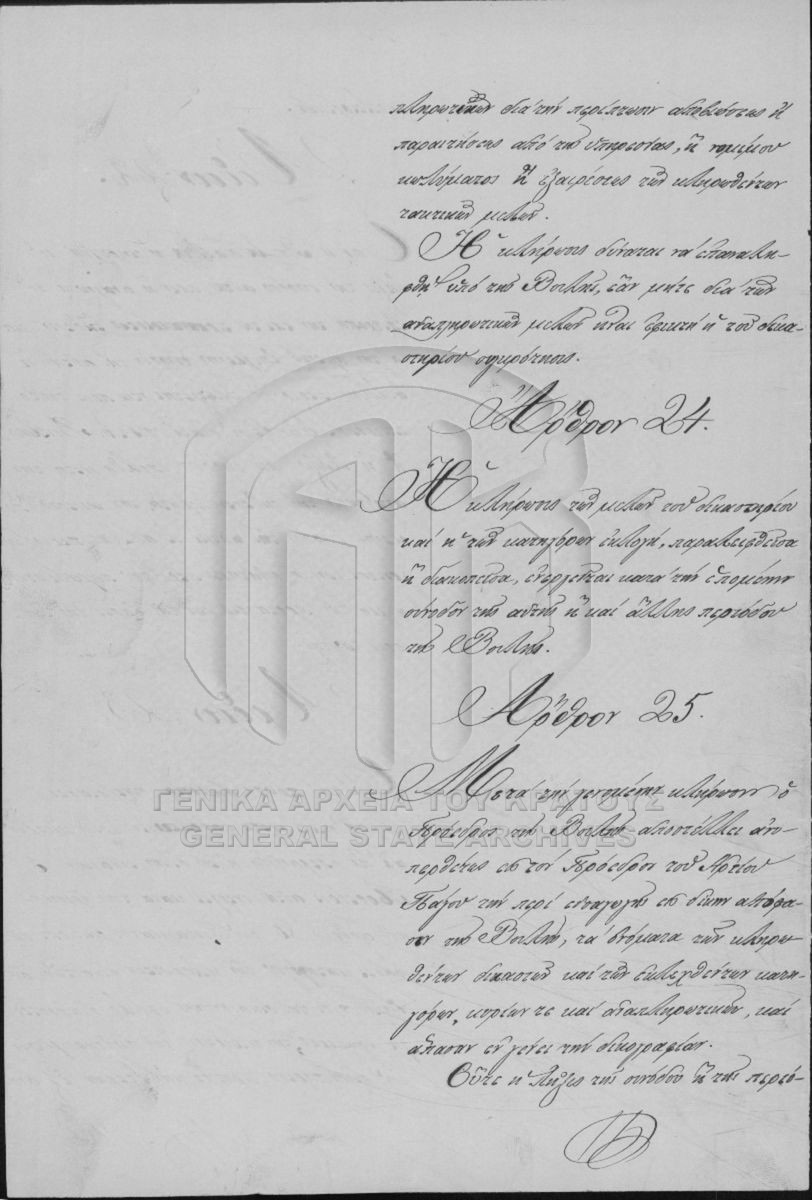 πληρωτικῶν διὰ τὴν περίπτωσιν ἀποβιώσεως ἢ
παραιτήσεως ἀπὸ τῆς ὑπηρεσίας, ἢ νομίμου
κωλύματος ἢ ἐξαιρέσεως τῶν κληρωθέντων
τακτικῶν μελῶν.
Ἡ κλήρωσις δύναται νὰ ἐπαναλη-
φθῇ ὑπὸ τῆς Βουλῆς, ἐὰν μήτε διὰ τῶν
ἀναπληρωτικῶν μελῶν ᾖναι ἐφικτὴ ἡ τοῦ δικα-
στηρίου συγκρότησις.
Ἄρθρον 24.
Ἡ κλήρωσις τῶν μελῶν τοῦ δικαστηρίου
καὶ ἡ τῶν κατηγόρων ἐκλογὴ, παραλειφθεῖσα
ἢ διακοπεῖσα, ἐνεργεῖται κατὰ τὴν ἑπομένην
σύνοδον τῆς αὐτῆς ἢ καὶ ἄλλης περιόδου
τῆς Βουλῆς.
Ἄρθρον 25.
Μετὰ τὴν γενομένην κλήρωσιν ὁ
Πρόεδρος τῆς Βουλῆς ἀποστέλλει ἀνυ-
περθέτως εἰς τὸν Πρόεδρον τοῦ Ἀρείου
Πάγου τὴν περὶ εἰσαγωγῆς εἰς δίκην ἀπόφα-
σιν τῆς Βουλῆς, τὰ ὀνόματα τῶν κληρω-
θέντων δικαστῶν καὶ τῶν ἐκλεχθέντων κατη-
γόρων, κυρίων τε καὶ ἀναπληρωτικῶν, καὶ
ἅπασαν ἐν γένει τὴν δικογραφίαν.
Οὔτε ἡ λῆξις τῆς συνόδου ἢ τῆς περιό-
ΓΕΝΙΚΑ ΑΡΧΕΙΑ ΤΟΥ ΚΡΑΤΟΥΣ
GENERAL STATE ARCHIVES